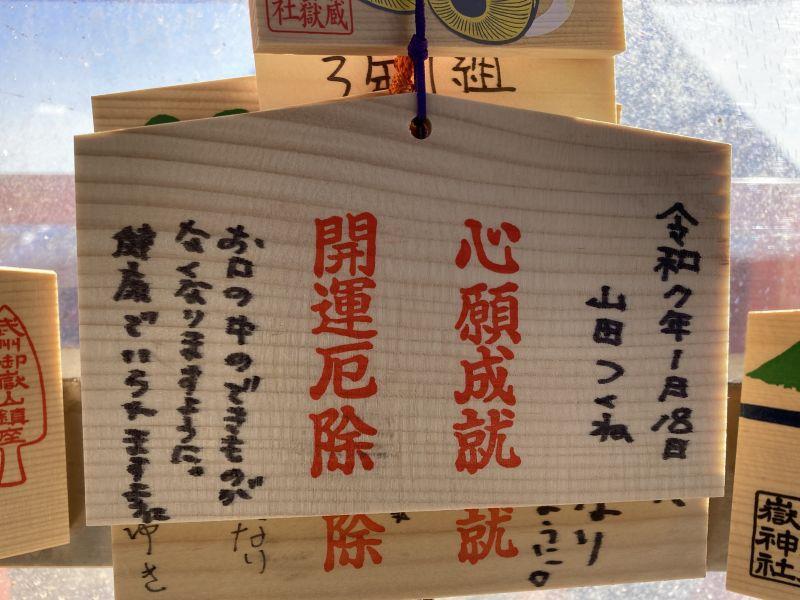 蔵
嶽
社
3年1組
令和7年1月18日
山田つくね
心願成就
開運厄除
お口の中のできものが
なくなりますように。
健康でいられますように
武州御嶽山鎮座
嶽神社
なり
ように。
就
除
なり
ゆき